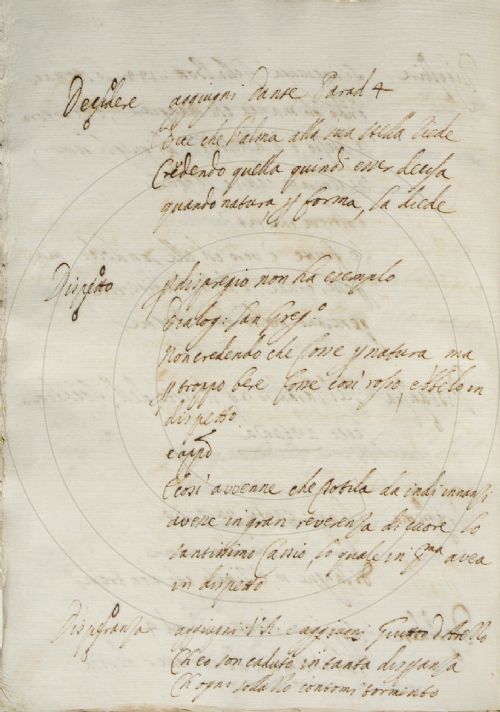 Decidere aggiugni Dante Parad 4
Dice che l'alma alla sua stella riede
Credendo quella quindi esser decisa
quando natura p forma la diede
Dispetto p dispregio non ha esempio
Dialog: San Greg.o
Non credendo che fosse p natura ma
p troppo bere fosse così rosso, ebbelo in
dispetto
e appo
E così avvenne che da indi innanzi
avesse in gran reverenza di cuore lo
santissimo Cassio, lo quale in p.ma avea
in dispetto
Disperanza aggiugni V.A. e aggiugni Guitto d'Arezzo
Ch'eo son caduto in tanta disperanza
Ch'ogni sollazzo contomi tormento